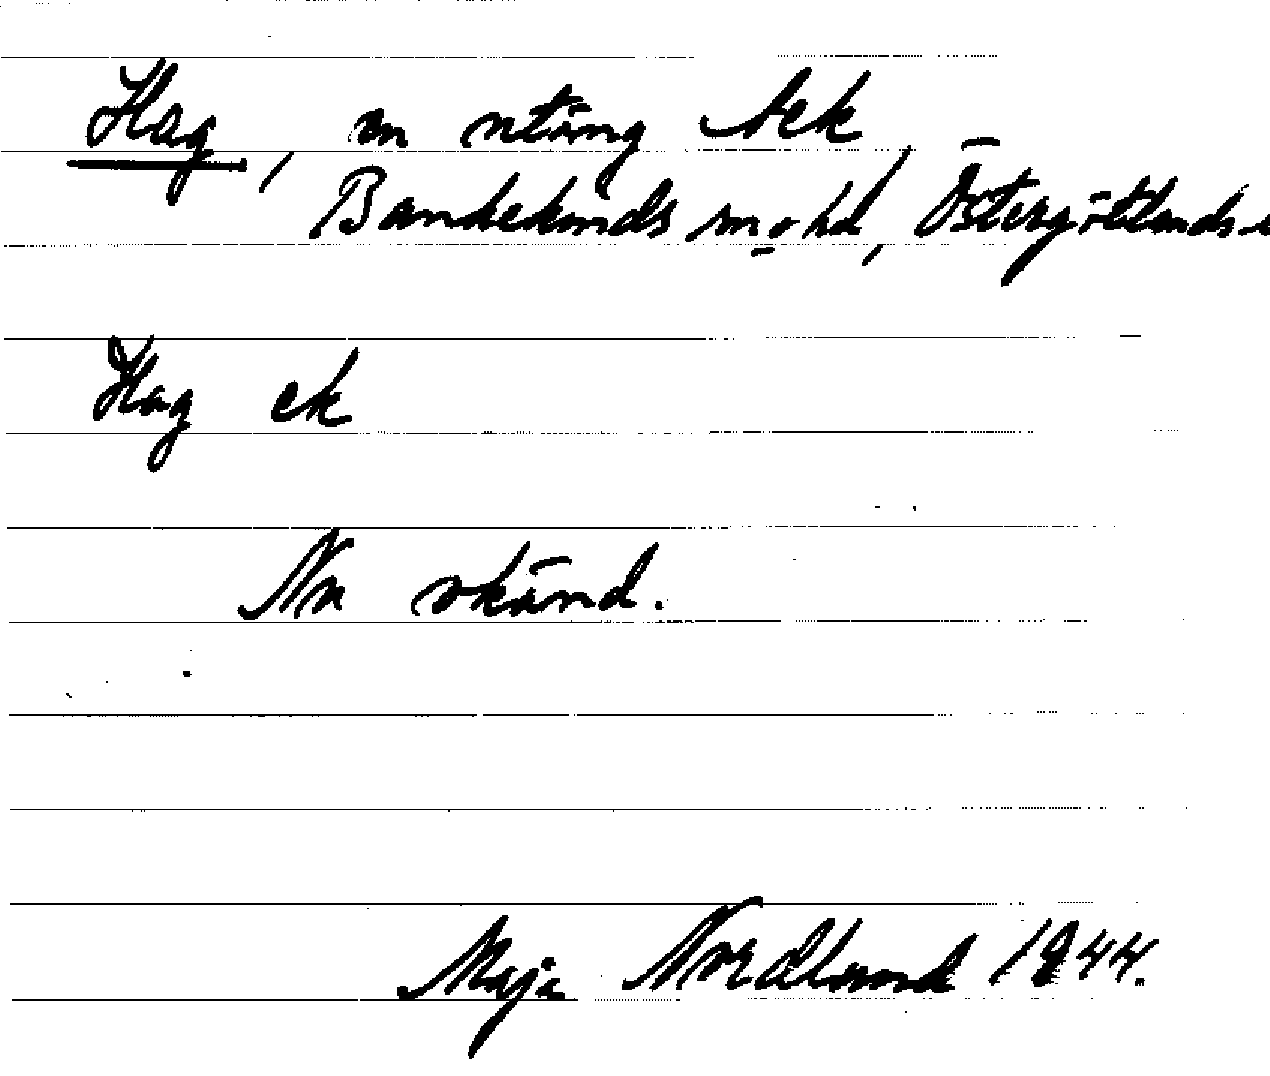 Hag, en utäng
Bankekinds sn o hd, Östergötlands
Hag ek
Nu okänd.
Maja Nordlund 1944.